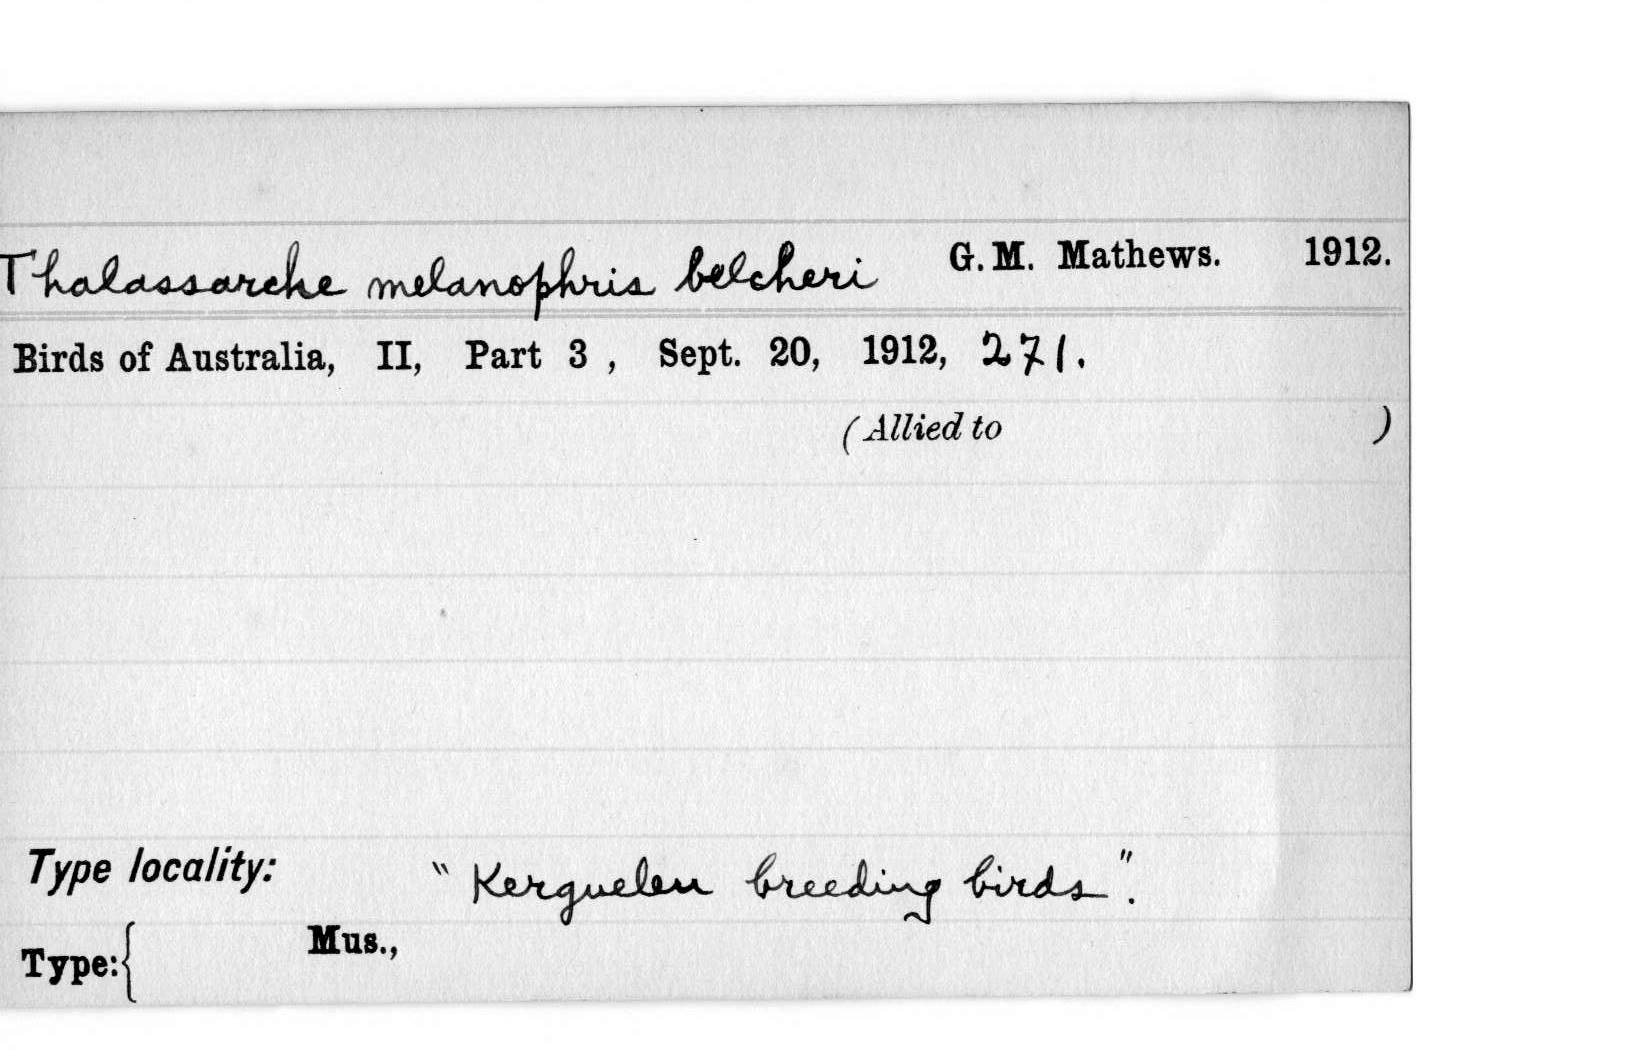 Thalassarche melanophris belcheri G. M. Mathews. 1912.
Birds of Australia, II, Part 3 , Sept. 20, 1912, 271.
(Allied to )
Type locality: "Kerguelen breeding birds".
Type:{ Mus.,